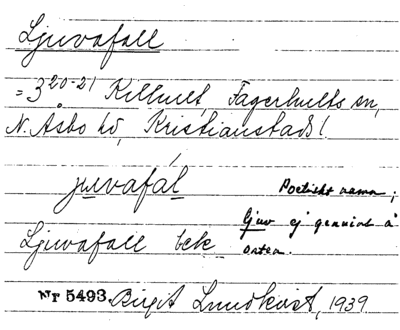 Ljuvafall
= 3²⁰⁻²¹ Killhult, Fagerhults sn,
N. Åsbo hd, Kristianstads l.
juvafál
Poetiskt namn;
ljuv ej genuint å
orten.
Ljuvafall bek
Nr 5493. Birgit Lundkvist, 1939